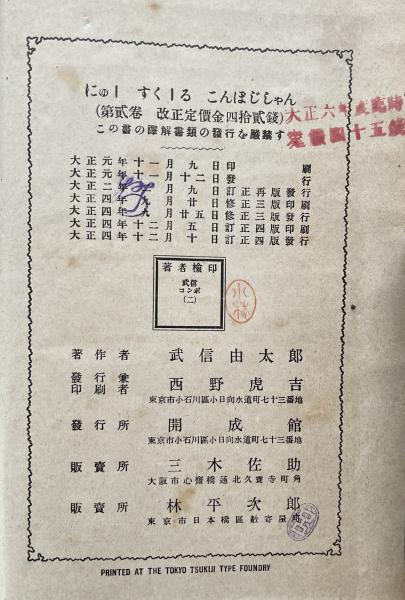 にゅー すくーる こんぽじしゃん
(第貳卷 改正定價金四拾貳錢)
この書の譯解書類の發行を嚴禁す
大正六年度臨時
定價四十五錢
大正元年十一月九日印刷
大正元年十一月十二日發行
大正二年 月九日訂正再版發行
大正四年九月廿日修正三版印刷
大正四年九月廿五日修正三版發行
大正四年十二月五日訂正四版印刷
大正四年十二月十日訂正四版發行
著者檢印
武信
コンポ
(二)
著作者 武信由太郎
發行兼
印刷者 西野虎吉
東京市小石川區小日向水道町七十三番地
發行所 開成館
東京市小石川區小日向水道町七十三番地
販賣所 三木佐助
大阪市心齋橋通北久寶寺町角
販賣所 林平次郎
東京市日本橋區數寄屋町
PRINTED AT THE TOKYO TSUKIJI TYPE FOUNDRY